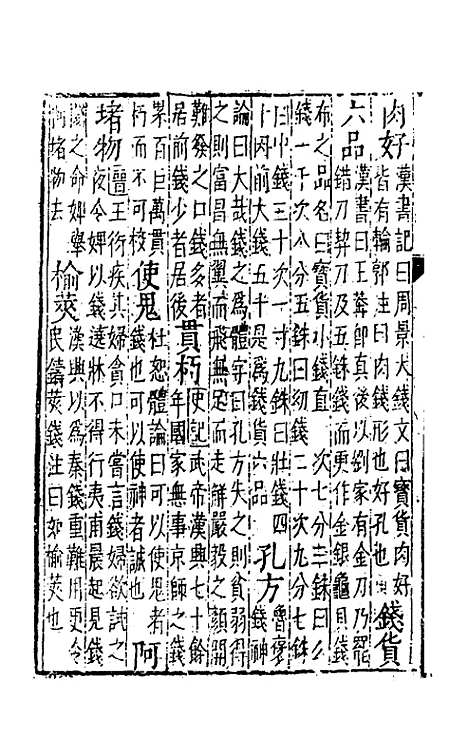 肉好漢書記曰周景大錢文曰寶貨肉好
皆有輪郭注曰肉錢形也好孔也 錢貨
六品漢書曰王莽即真後以劉家有金刀乃罷
錯刀契刀及五銖錢而更作金銀龜貝錢
布之品名曰寶貨小錢直一次七分三銖曰幺
錢一十次八分五銖曰幼錢二十次九分七銖
曰中錢三十次一寸九銖曰壯錢四
十因前大錢五十是爲錢貨六品 孔方魯褒
錢神
論曰大哉錢之爲體字曰孔方失之則貧弱得
之則富昌無翼而飛無足而走解嚴毅之顏開
難發之口錢多者
居前錢少者居後 貫朽史記武帝漢興七十餘
年國家無事京師之錢
累百巨萬貫
朽而不可校 使鬼杜恕體論曰可以使鬼者
錢也可以使神者誠也 阿
堵物晉王衍疾其婦貪口未嘗言錢婦欲試之
夜令婢以錢遶牀不得行夷甫晨起見錢
閡之命婢舉
阿堵物去 榆莢漢興以爲秦錢重難用更令
民鑄莢錢注曰如榆莢也